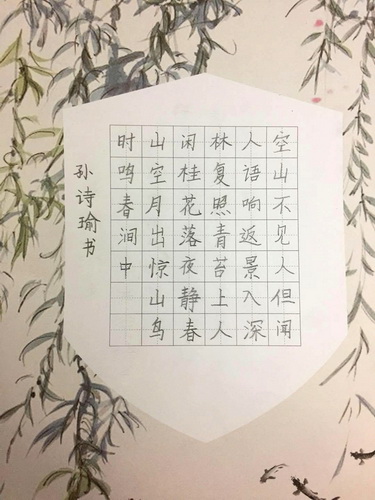 空山不见人但闻
人语响返景入深
林复照青苔上人
闲桂花落夜静春
山空月出惊山鸟
时鸣春涧中
孙诗瑜书